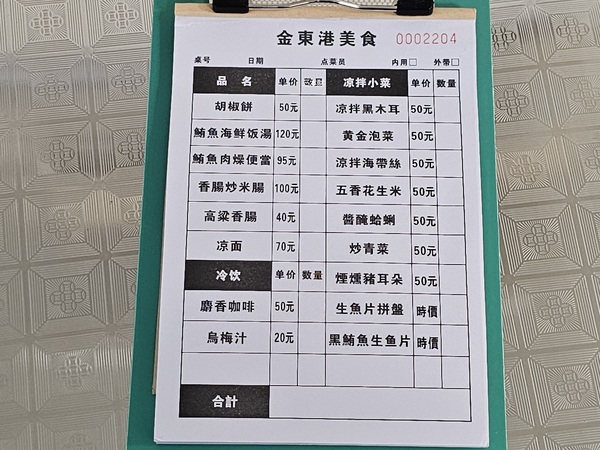 金東港美食 0002204
桌号 日期 点菜员 内用□ 外带□
品 名 单价 数量 凉拌小菜 单价 数量
胡椒餅 50元 凉拌黑木耳 50元
鮪魚海鲜饭湯 120元 黄金泡菜 50元
鮪魚肉燥便當 95元 涼拌海帶絲 50元
香腸炒米腸 100元 五香花生米 50元
高粱香腸 40元 醬醃蛤蜊 50元
凉面 70元 炒青菜 50元
冷饮 单价 数量 煙燻豬耳朵 50元
麝香咖啡 50元 生魚片拼盤 時價
烏梅汁 20元 黑鮪魚生鱼片 時價
合計